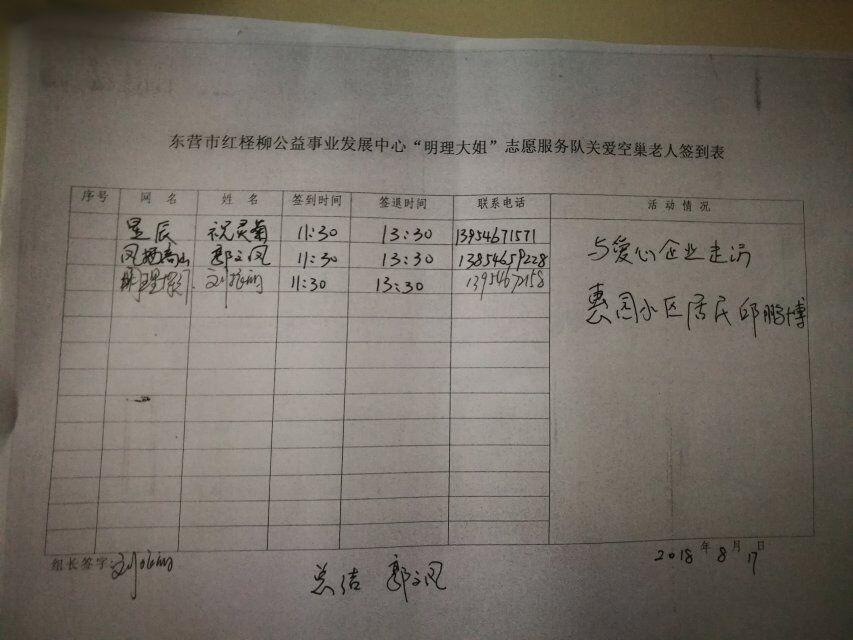 东营市红柽柳公益事业发展中心“明理大姐”志愿服务队关爱空巢老人签到表
序号 网 名 姓 名 签到时间 签退时间 联系电话 活 动 情 况
星辰 祝灵菊 11:30 13:30 13954671571
凤栖高山 郭文凤 11:30 13:30 13854659228
明理 刘 11:30 13:30
与爱心企业走访
惠园小区居民邱鹏博
组长签字: 刘
总结 郭文凤
2018年8月17日